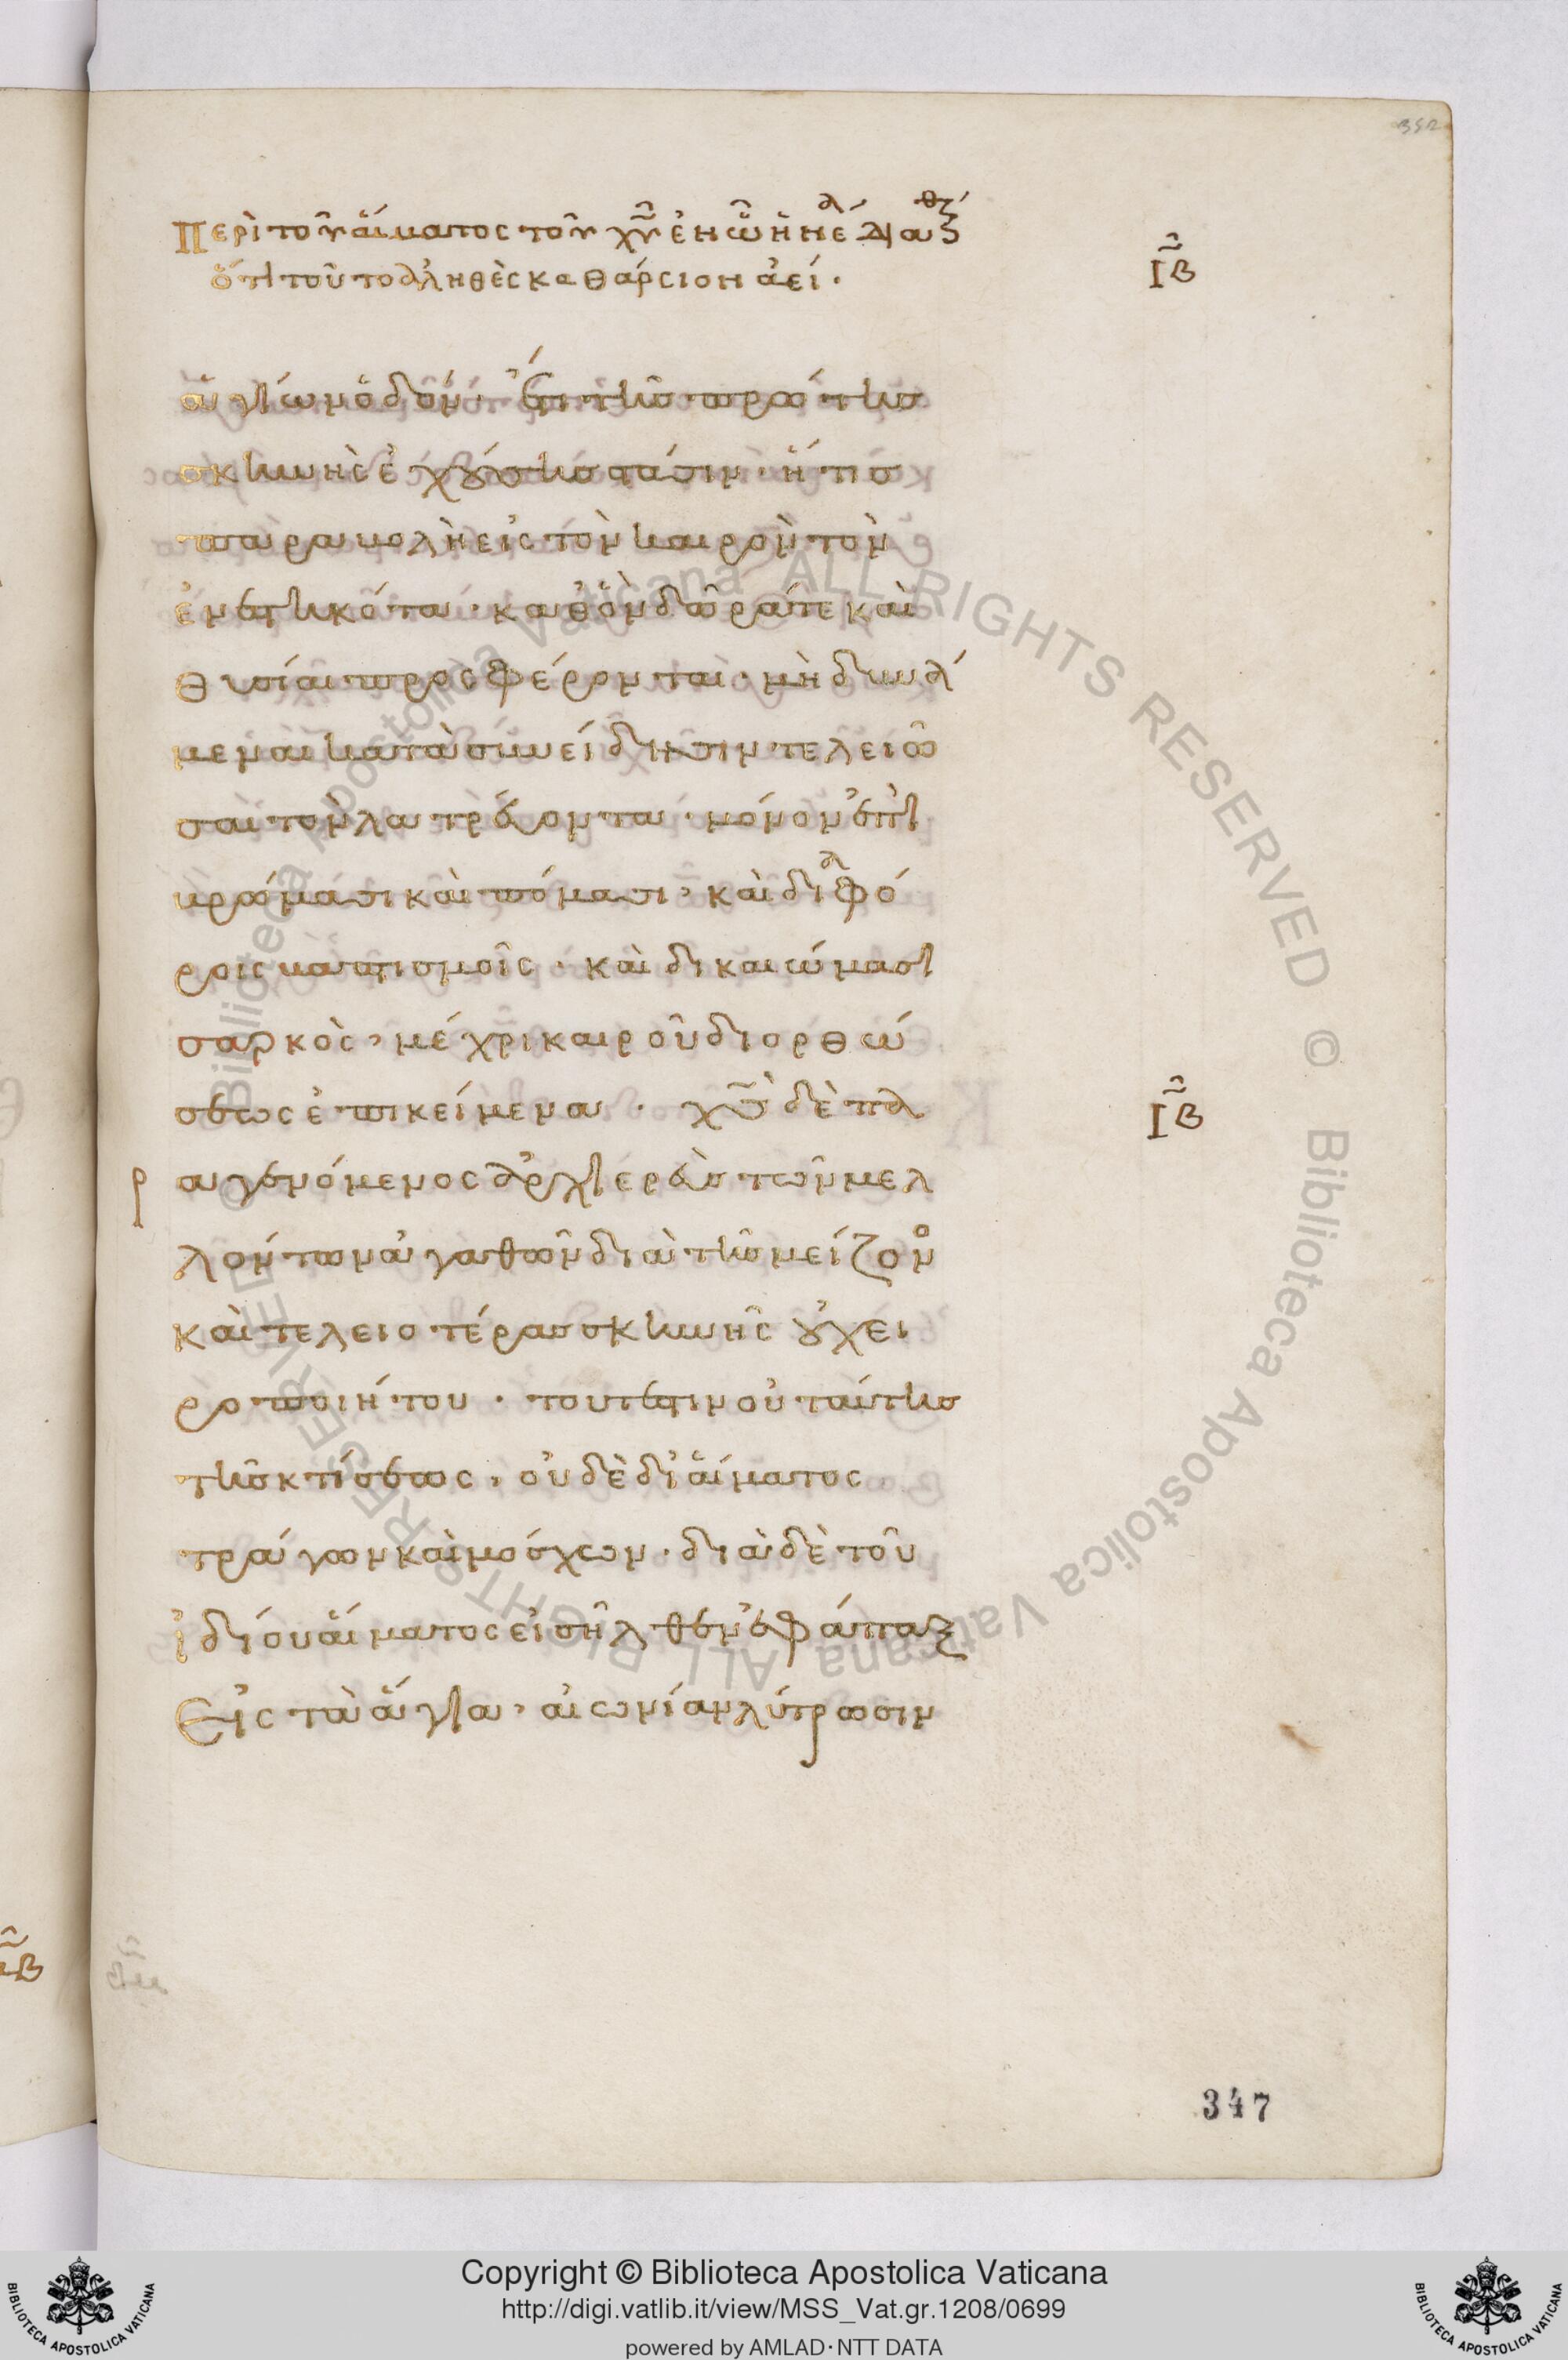 352
Περὶ τοῦ αἵματος τοῦ χυ ἐν ὧ ἡ νέα διαθή
ὅτι τοῦτο ἀληθὲς καθάρσιον ἀεί·
ιβ
ἁγίων ὁδόν· ἔτι τῆς πρώτης
σκηνῆς ἐχούσης στάσιν· ἥτις
παραβολὴ εἰς τὸν καιρὸν τὸν
ἐνεστηκότα· καθ' ὃν δῶρά τε καὶ
θυσίαι προσφέρονται· μὴ δυνά
μεναι κατὰ συνείδησιν τελειῶ
σαι τὸν λατρεύοντα· μόνον ἐπὶ
βρώμασι καὶ πόμασι· καὶ διαφό
ροις βαπτισμοῖς· καὶ δικαιώμασι
σαρκὸς· μέχρι καιροῦ διορθώ
σεως ἐπικείμενα· χς δὲ πα
ιβ
ρ αγενόμενος ἀρχιερεὺς τῶν μελ
λόντων ἀγαθῶν διὰ τῆς μείζον
καὶ τελειοτέρας σκηνῆς οὐ χει
ροποιήτου· τουτέστιν οὐ ταύτης
τῆς κτίσεως· οὐδὲ δι' αἵματος
τράγων καὶ μόσχων· διὰ δὲ τοῦ
ἰδίου αἵματος εἰσῆλθεν ἐφάπαξ
Εἰς τὰ ἅγια· αἰωνίαν λύτρωσιν
347
Copyright © Biblioteca Apostolica Vaticana
http://digi.vatlib.it/view/MSS_Vat.gr.1208/0699
powered by AMLAD·NTT DATA
BIBLIOTECA APOSTOLICA VATICANA
BIBLIOTECA APOSTOLICA VATICANA
© Biblioteca Apostolica Vaticana ALL RIGHTS RESERVED © Biblioteca Apostolica Vaticana ALL RIGHTS RESERVED